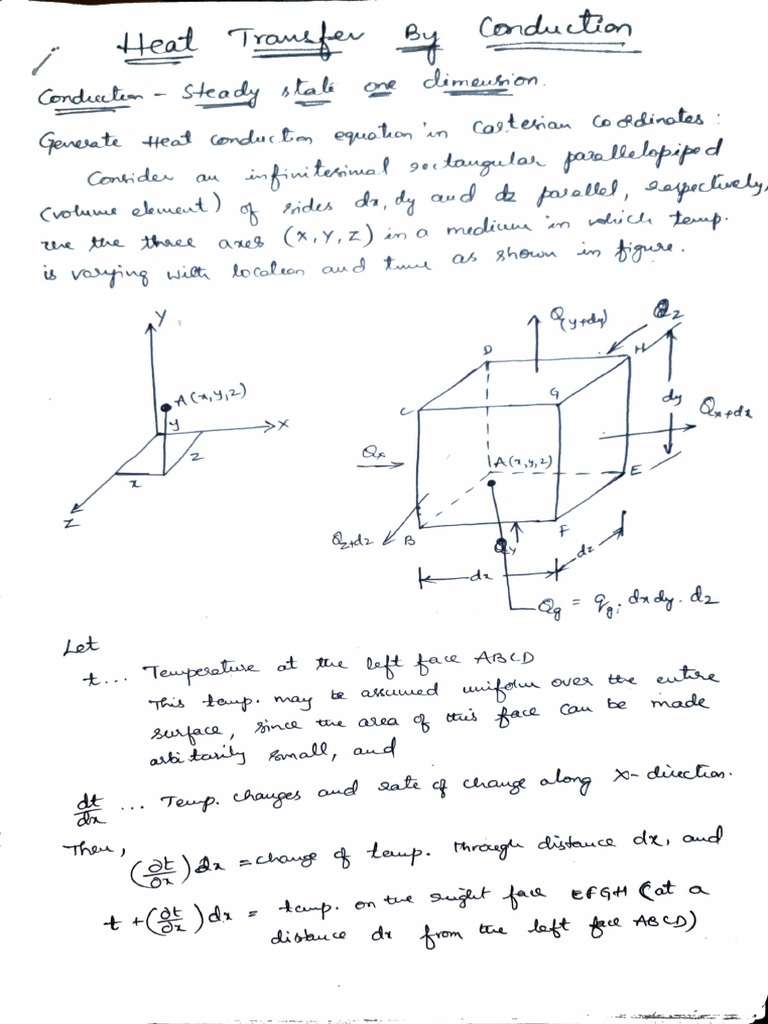 Heat Transfer By Conduction
Conduction - Steady state one dimension.
Generate Heat conduction equation in Cartesian Coordinates :
Consider an infinitesimal rectangular parallelopiped
(volume element) of sides dx, dy and dz parallel, respectively,
the three axes (X, Y, Z) in a medium in which temp.
is varying with location and time as shown in figure.
Y
A(x,y,z)
y
X
z
x
Z
Q(y+dy)
Qz
D
H
C
G
dy
Qx+dx
Qx
A(x,y,z)
E
Qz+dz
B
Qy
F
dz
dx
Qg = qg. dx dy. dz
Let
t... Temperature at the left face ABCD
This temp. may be assumed uniform over the entire
surface, since the area of this face can be made
arbitarily small, and
dt/dx ... Temp. changes and rate of change along X-direction.
Then,
(∂t/∂x) dx = change of temp. through distance dx, and
t + (∂t/∂x) dx = temp. on the right face EFGH (at a
distance dx from the left face ABCD)